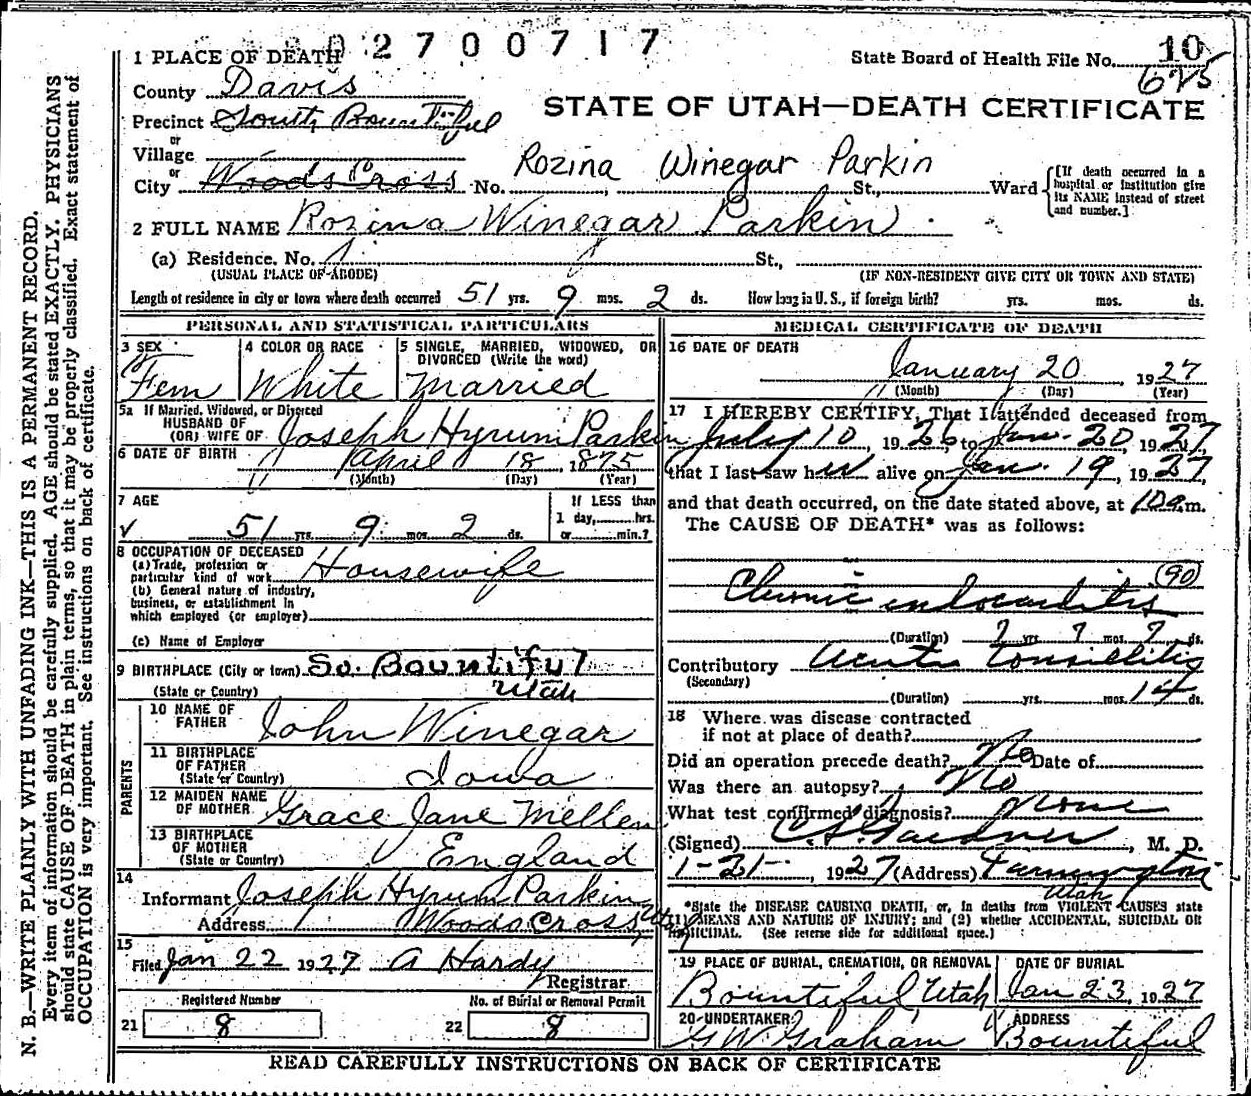 02700717
1 PLACE OF DEATH
State Board of Health File No. 10
625
County Davis
STATE OF UTAH—DEATH CERTIFICATE
Precinct South Bountiful
or
Village
Rozina Winegar Parkin
or
City Woods Cross No. St., Ward
[If death occurred in a hospital or institution give its NAME instead of street and number.]
2 FULL NAME Rozina Winegar Parkin
(a) Residence. No. 1 St.,
(USUAL PLACE OF ABODE) (IF NON-RESIDENT GIVE CITY OR TOWN AND STATE)
Length of residence in city or town where death occurred 51 yrs. 9 mos. 2 ds. How long in U. S., if foreign birth? yrs. mos. ds.
PERSONAL AND STATISTICAL PARTICULARS
3 SEX 4 COLOR OR RACE 5 SINGLE, MARRIED, WIDOWED, OR
DIVORCED (Write the word)
Fem White Married
5a If Married, Widowed, or Divorced
HUSBAND OF
(OR) WIFE OF Joseph Hyrum Parkin
6 DATE OF BIRTH April 18 1875
(Month) (Day) (Year)
7 AGE If LESS than
1 day,......hrs.
51 yrs. 9 mos. 2 ds. or......min.?
8 OCCUPATION OF DECEASED
(a) Trade, profession or
particular kind of work Housewife
(b) General nature of industry,
business, or establishment in
which employed (or employer)
(c) Name of Employer
9 BIRTHPLACE (City or town) So. Bountiful
(State or Country) Utah
PARENTS
10 NAME OF
FATHER John Winegar
11 BIRTHPLACE
OF FATHER
(State or Country) Iowa
12 MAIDEN NAME
OF MOTHER Grace Jane Mellen
13 BIRTHPLACE
OF MOTHER
(State or Country) England
14
Informant Joseph Hyrum Parkin
Address Woods Cross, Utah
15
Filed Jan 22 1927 A Hardy
Registrar
Registered Number No. of Burial or Removal Permit
21 8 22 8
MEDICAL CERTIFICATE OF DEATH
16 DATE OF DEATH
January 20, 1927
(Month) (Day) (Year)
17 I HEREBY CERTIFY, That I attended deceased from
July 10, 1926, to Jan. 20, 1927,
that I last saw her alive on Jan. 19, 1927,
and that death occurred, on the date stated above, at 10a.m.
The CAUSE OF DEATH* was as follows:
(90)
Chronic endocarditis
(Duration) ? yrs. ? mos. ? ds.
Contributory Acute Tonsillitis
(Secondary)
(Duration) yrs. mos. 14 ds.
18 Where was disease contracted
if not at place of death?
Did an operation precede death? No Date of
Was there an autopsy? No
What test confirmed diagnosis? None
(Signed) C. S. Gardner, M. D.
1-21-, 1927 (Address) Farmington
Utah
*State the DISEASE CAUSING DEATH, or, in deaths from VIOLENT CAUSES state
(1) MEANS AND NATURE OF INJURY; and (2) whether ACCIDENTAL, SUICIDAL OR
HOMICIDAL. (See reverse side for additional space.)
19 PLACE OF BURIAL, CREMATION, OR REMOVAL DATE OF BURIAL
Bountiful Utah Jan 23, 1927
20 UNDERTAKER ADDRESS
G W Graham Bountiful
READ CAREFULLY INSTRUCTIONS ON BACK OF CERTIFICATE
N. B.—WRITE PLAINLY WITH UNFADING INK—THIS IS A PERMANENT RECORD.
Every item of information should be carefully supplied. AGE should be stated EXACTLY. PHYSICIANS
should state CAUSE OF DEATH in plain terms, so that it may be properly classified. Exact statement of
OCCUPATION is very important. See instructions on back of certificate.